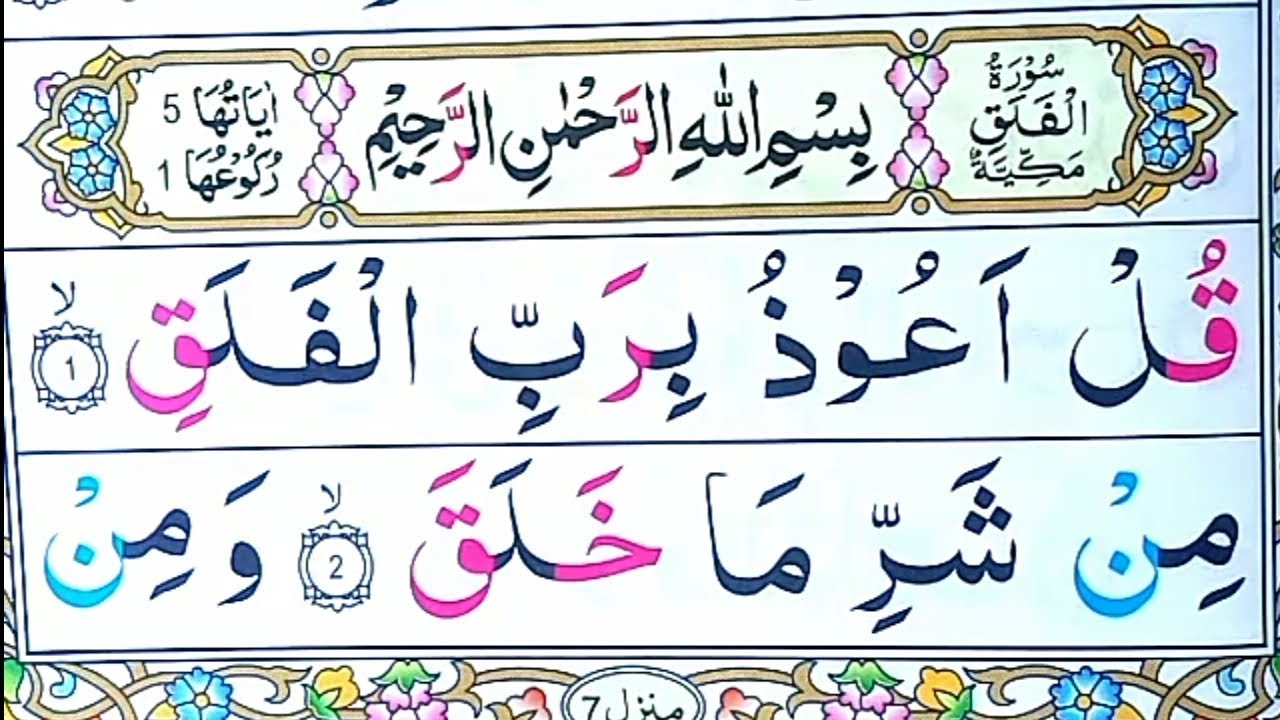 سُوْرَةُ
الْفَلَقِ
مَكِّيَّةٌ
بِسْمِ اللّٰهِ الرَّحْمٰنِ الرَّحِيْمِ
اٰيَاتُهَا 5
رُكُوْعُهَا 1
قُلْ اَعُوْذُ بِرَبِّ الْفَلَقِ لا 1
مِنْ شَرِّ مَا خَلَقَ لا 2 وَمِنْ
منزل 7